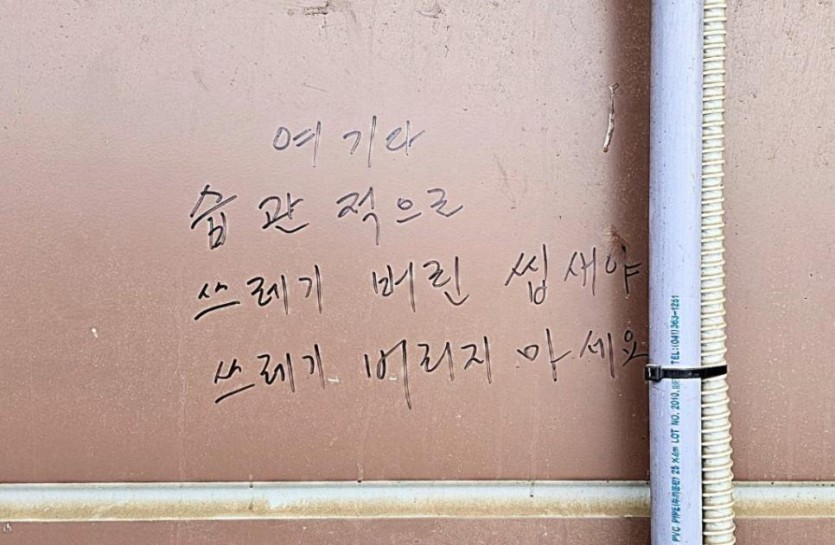 여기다
습관적으로
쓰레기 버린 씹새야
쓰레기 버리지 마세요
PVC PIPE(주)한양 25 X4m LOT NO. 2010. TEL:(041)363-1251